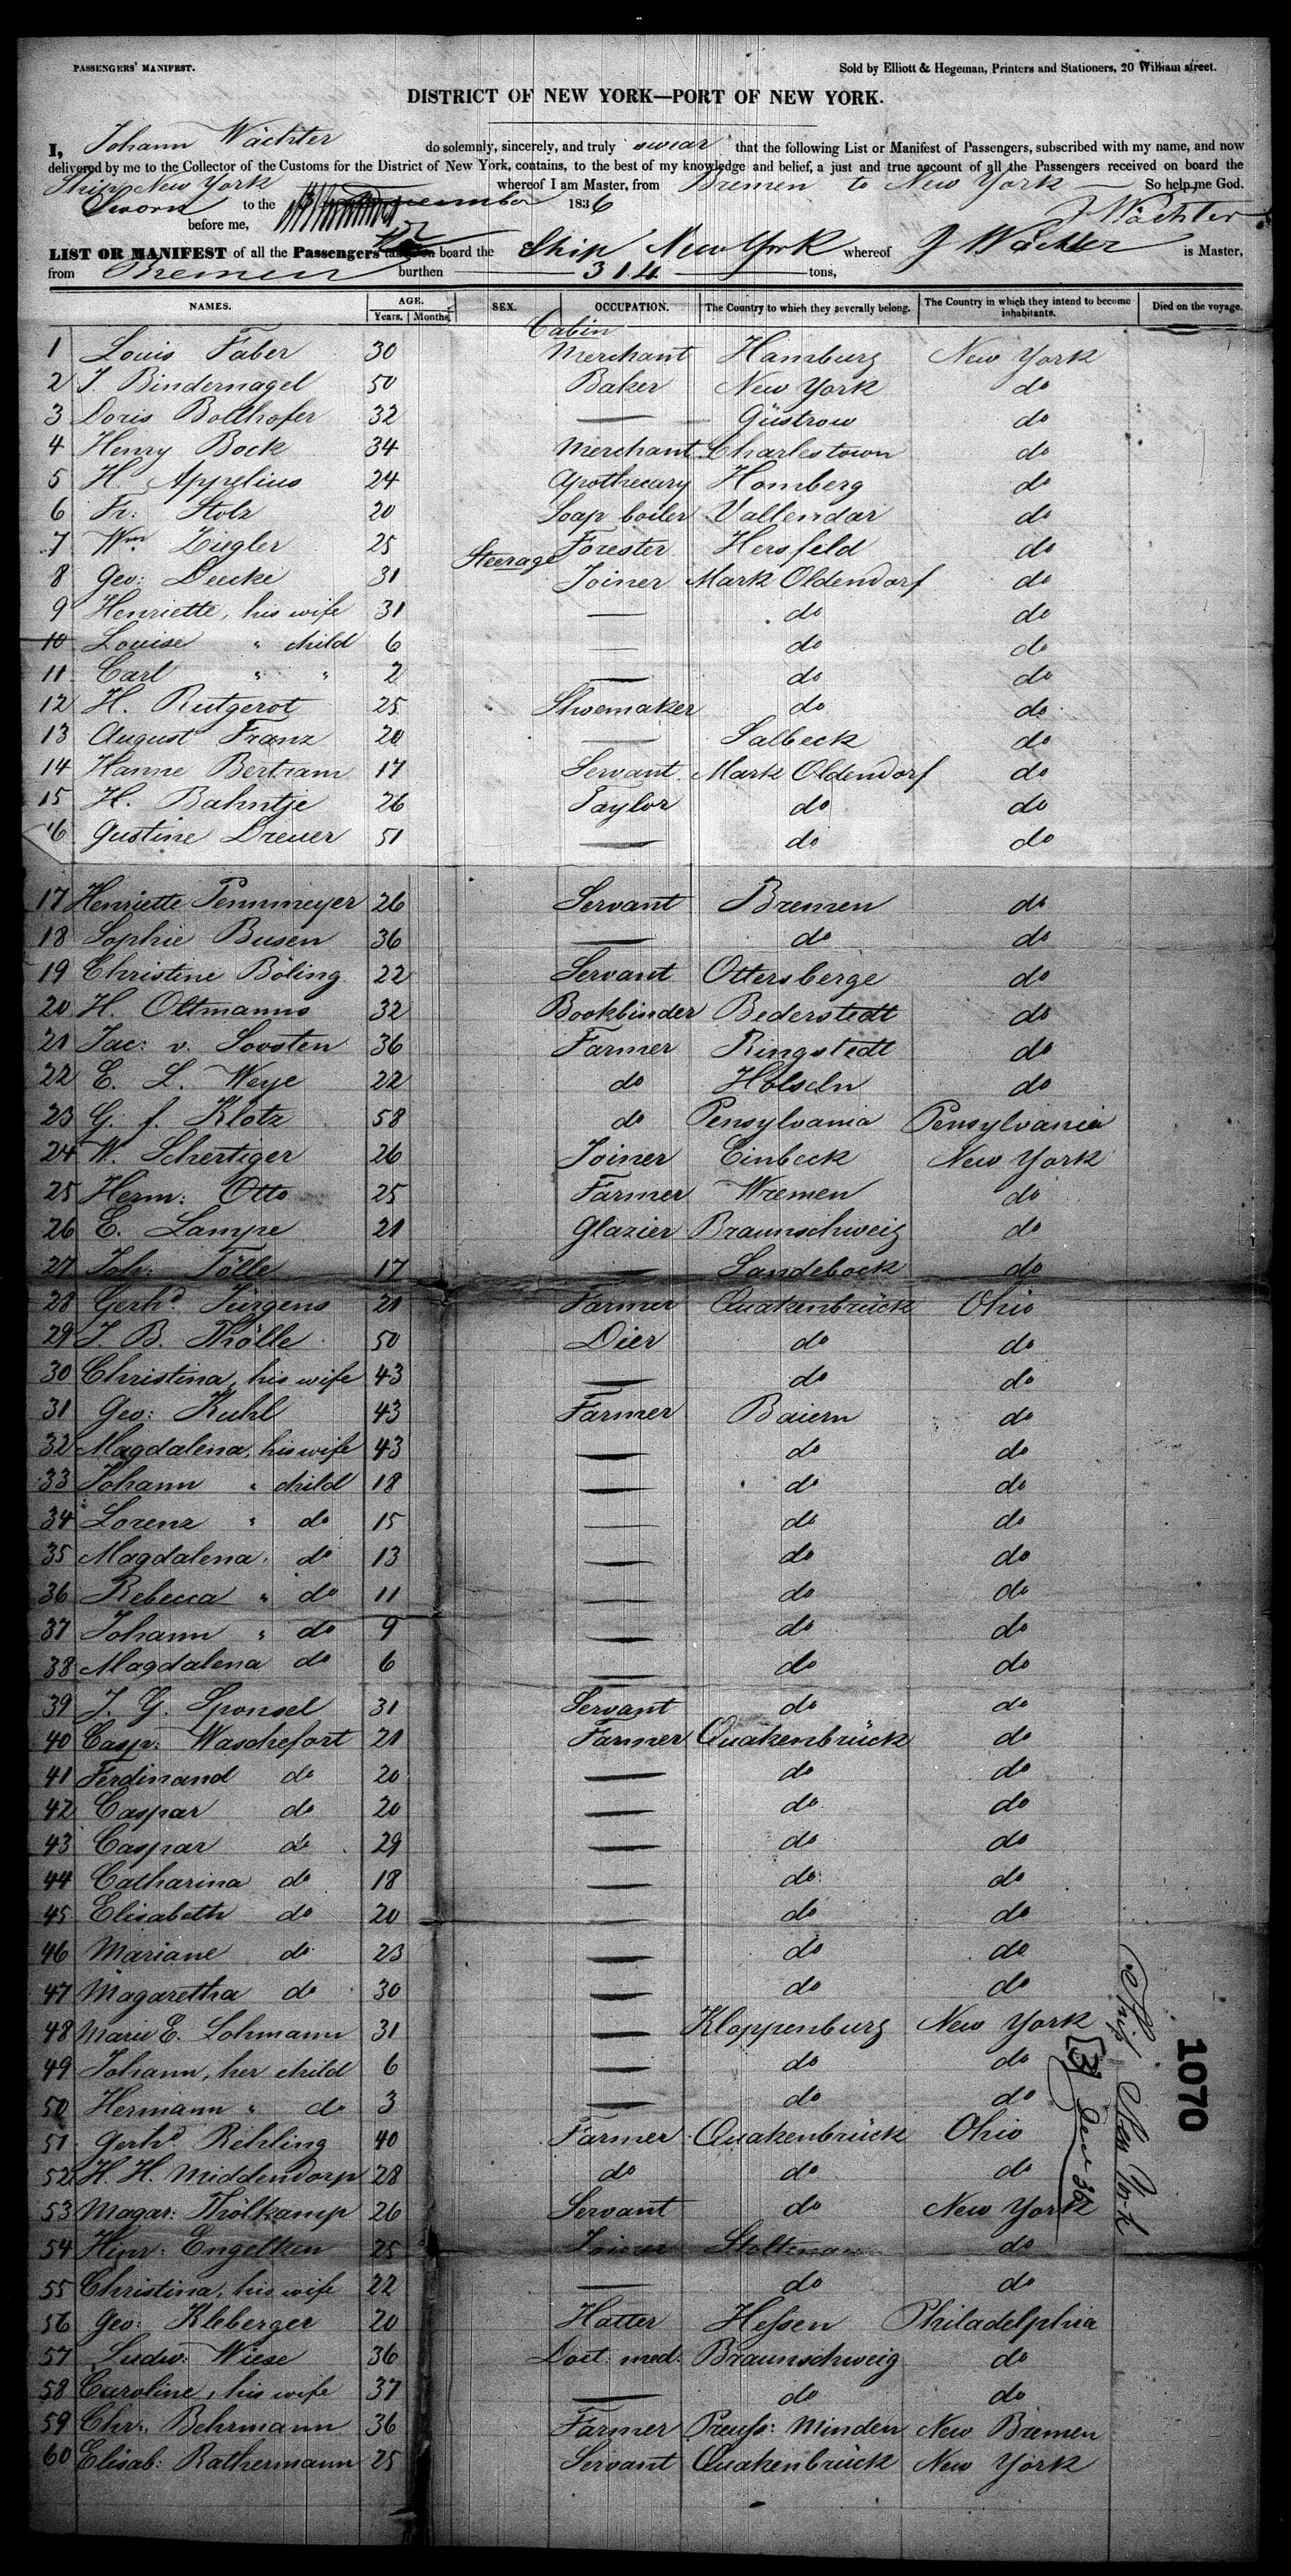 PASSENGERS' MANIFEST.
Sold by Elliott & Hegeman, Printers and Stationers, 20 William street.
DISTRICT OF NEW YORK—PORT OF NEW YORK.
I, Johann Wächter do solemnly, sincerely, and truly swear that the following List or Manifest of Passengers, subscribed with my name, and now
delivered by me to the Collector of the Customs for the District of New York, contains, to the best of my knowledge and belief, a just and true account of all the Passengers received on board the
Ship New York whereof I am Master, from Bremen to New York So help me God.
Sworn to the 1836 J Wächter
before me,
LIST OR MANIFEST of all the Passengers taken on board the Ship New York whereof J Wächter is Master,
from Bremen burthen 314 tons,
NAMES. AGE. Years. Months. SEX. OCCUPATION. The Country to which they severally belong. The Country in which they intend to become inhabitants. Died on the voyage.
Cabin
1 Louis Faber 30 Merchant Hamburg New York
2 J. Bindernagel 50 Baker New York do
3 Doris Bollhofer 32 — Güstrow do
4 Henry Bock 34 Merchant Charlestown do
5 H. Appelius 24 Apothecary Homberg do
6 Fr: Stolz 20 Soap boiler Vallendar do
7 Wm Ziegler 25 Forester Hersfeld do
Steerage
8 Geo: Deecke 31 Joiner Mark Oldendorf do
9 Henriette, his wife 31 — do do
10 Louise " child 6 — do do
11 Carl " " 2 — do do
12 H. Rutgerot 25 Shoemaker do do
13 August Franz 20 — Salbeck do
14 Hanne Bertram 17 Servant Mark Oldendorf do
15 H. Bahntje 26 Taylor do do
16 Gustine Dreuer 51 — do do
17 Henriette Pennmeyer 26 Servant Bremen do
18 Sophie Busen 36 — do do
19 Christine Böling 22 Servant Ottersberge do
20 H. Oltmanns 32 Bookbinder Bederstedt do
21 Jac: v. Soosten 36 Farmer Ringstedt do
22 E. L. Weye 22 do Holseln do
23 G. f. Klotz 58 do Pensylvania Pensylvania
24 W. Schertiger 26 Joiner Einbeck New York
25 Herm: Otto 25 Farmer Wremen do
26 E. Lampe 21 Glazier Braunschweig do
27 Joh: Tölle 17 — Sandebock do
28 Gerhd Jürgens 21 Farmer Quakenbrück Ohio
29 J. B. Thölle 50 Dier do do
30 Christina, his wife 43 — do do
31 Geo: Kuhl 43 Farmer Baiern do
32 Magdalena, his wife 43 — do do
33 Johann " child 18 — do do
34 Lorenz " do 15 — do do
35 Magdalena " do 13 — do do
36 Rebecca " do 11 — do do
37 Johann " do 9 — do do
38 Magdalena do 6 — do do
39 J. G. Sponsel 31 Servant do do
40 Casp: Waschefort 21 Farmer Quakenbrück do
41 Ferdinand do 20 — do do
42 Caspar do 20 — do do
43 Caspar do 29 — do do
44 Catharina do 18 — do do
45 Elisabeth do 20 — do do
46 Mariane do 23 — do do
47 Magaretha do 30 — do do
48 Marie E. Lohmann 31 — Kloppenburg New York
49 Johann, her child 6 — do do
50 Hermann " do 3 — do do
51 Gerhd Rehling 40 Farmer Quakenbrück Ohio
52 H. H. Middendorp 28 do do do
53 Magar: Thölkamp 26 Servant do New York
54 Hinr: Engelken 25 Joiner do
55 Christina, his wife 22 — do do
56 Geo: Kleberger 20 Hatter Hessen Philadelphia
57 Ludw: Wiese 36 Doct: med. Braunschweig do
58 Caroline, his wife 37 — do do
59 Chr: Behrmann 36 Farmer Preuss: Minden New Bremen
60 Elisab: Rathermann 25 Servant Quakenbrück New York
Ship New York
1070